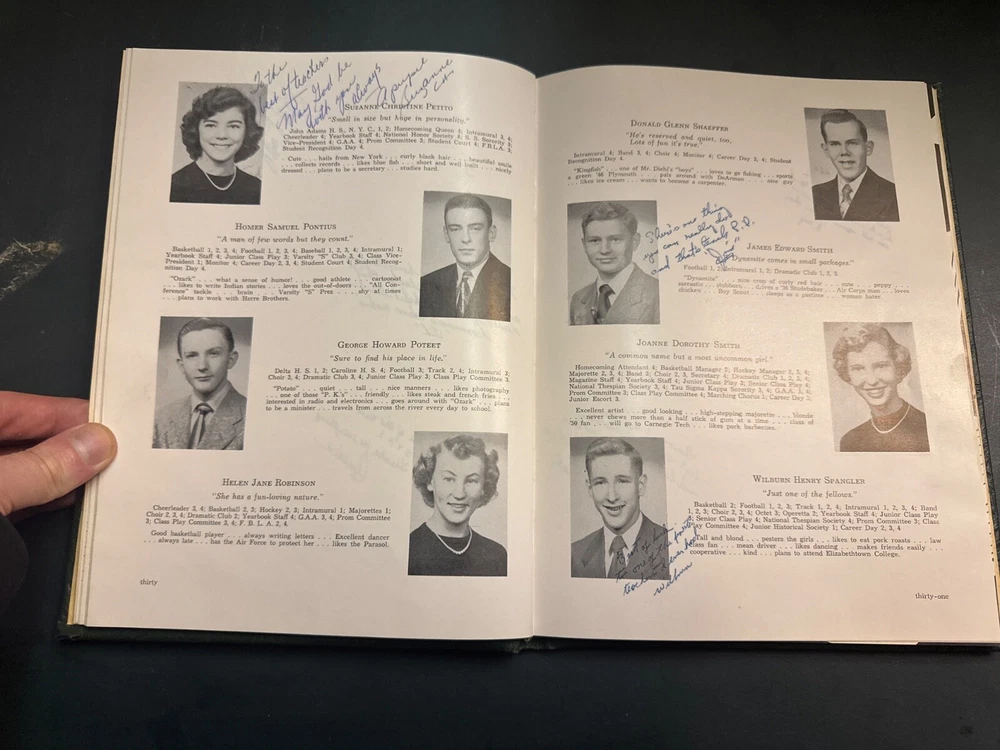 To the
best of teachers
May God be
with you
always
Suzanne
SUZANNE CHRISTINE PETITO
"Small in size but huge in personality."
John Adams H. S., N. Y. C., 1, 2; Homecoming Queen 4; Intramural 3, 4;
Cheerleader 4; Yearbook Staff 4; National Honor Society 4; S. S. Sorority 3;
Vice-President 4; G.A.A. 4; Prom Committee 3; Student Court 4; F.B.L.A. 3;
Student Recognition Day 4.
Cute . . . hails from New York . . . curly black hair . . . beautiful smile
. . . collects records . . . likes blue fish . . . short and well built . . . nicely
dressed . . . plans to be a secretary . . . studies hard.
HOMER SAMUEL PONTIUS
"A man of few words but they count."
Basketball 1, 2, 3, 4; Football 1, 2, 3, 4; Baseball 1, 2, 3, 4; Intramural 1;
Yearbook Staff 4; Junior Class Play 3; Varsity "S" Club 3, 4; Class Vice-
President 1; Monitor 4; Career Day 2, 3, 4; Student Court 4; Student Recog-
nition Day 4.
"Ozark" . . . what a sense of humor! . . . good athlete . . . cartoonist
. . . likes to write Indian stories . . . loves the out-of-doors . . . "All Con-
ference" tackle . . . brain . . . Varsity "S" Prex . . . shy at times
. . . plans to work with Herre Brothers.
GEORGE HOWARD POTEET
"Sure to find his place in life."
Delta H. S. 1, 2; Caroline H. S. 4; Football 3; Track 2, 4; Intramural 3;
Choir 3, 4; Dramatic Club 3, 4; Junior Class Play 3; Class Play Committee 3.
"Potate" . . . quiet . . . tall . . . nice manners . . . likes photography
. . . one of those "P. K.'s" . . . friendly . . . likes steak and french fries . . .
interested in radio and electronics . . . goes around with "Ozark" . . . plans
to be a minister . . . travels from across the river every day to school.
HELEN JANE ROBINSON
"She has a fun-loving nature."
Cheerleader 3, 4; Basketball 2, 3; Hockey 2, 3; Intramural 1; Majorettes 1;
Choir 2, 3, 4; Dramatic Club 2; Yearbook Staff 4; G.A.A. 3, 4; Prom Committee
3; Class Play Committee 3, 4; F. B. L. A. 2, 4.
Good basketball player . . . always writing letters . . . Excellent dancer
. . . always late . . . has the Air Force to protect her . . . likes the Parasol.
thirty
DONALD GLENN SHAEFFER
"He's reserved and quiet, too,
Lots of fun it's true."
Intramural 4; Band 3, 4; Choir 4; Monitor 4; Career Day 3, 4; Student
Recognition Day 4.
"Kingfish" . . . one of Mr. Diehl's "boys" . . . loves to go fishing . . . sports
a green '46 Plymouth . . . pals around with DeArmon . . . nice guy
. . . likes ice cream . . . wants to become a carpenter.
There's one thing
you can really do
and that's teach P.D.
"Jim"
JAMES EDWARD SMITH
"Dynamite comes in small packages."
Football 1, 2; Intramural 1, 2; Dramatic Club 1, 2, 3.
"Dynamite" . . . new crop of curly red hair . . . cute . . . peppy . . .
sarcastic . . . stubborn . . . drives a '36 Studebaker . . . Air Corps man . . . loves
chicken . . . Boy Scout . . . sleeps as a pastime . . . woman hater.
JOANNE DOROTHY SMITH
"A common name but a most uncommon girl."
Homecoming Attendant 4; Basketball Manager 2; Hockey Manager 2, 3, 4;
Majorette 2, 3, 4; Band 2; Choir 2, 3, Secretary 4; Dramatic Club 1, 2, 3, 4;
Magazine Staff 4; Yearbook Staff 4; Junior Class Play 3; Senior Class Play 4;
National Thespian Society 3, 4; Tau Sigma Kappa Sorority 3, 4; G.A.A. 3, 4;
Prom Committee 3; Class Play Committee 4; Marching Chorus 1; Career Day 2;
Junior Escort 3.
Excellent artist . . . good looking . . . high-stepping majorette . . . blonde
. . . never chews more than a half stick of gum at a time . . . class of
'50 fan . . . will go to Carnegie Tech . . . likes pork barbecues.
WILBURN HENRY SPANGLER
"Just one of the fellows."
Basketball 2; Football 1, 2, 3; Track 1, 2, 4; Intramural 1, 2, 3, 4; Band
1, 2, 3; Choir 2, 3, 4; Octet 3; Operetta 2; Yearbook Staff 4; Junior Class Play
3; Senior Class Play 4; National Thespian Society 4; Prom Committee 3; Class
Play Committee 4; Junior Historical Society 1; Career Day 2, 3, 4
Tall and blond . . . pesters the girls . . . likes to eat pork roasts . . . law
class fan . . . mean driver . . . likes dancing . . . makes friends easily . . .
cooperative . . . kind . . . plans to attend Elizabethtown College.
Best of luck
to one of the
teachers I ever had
Wilburn
thirty-one